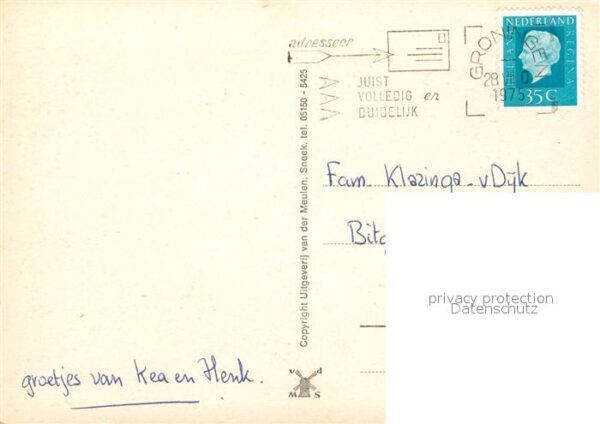 groetjes van Kea en Henk.
Copyright Uitgeverij van der Meulen, Sneek, tel. 05150 - 5425
v d
M S
adresseer
JUIST
VOLLEDIG en
DUIDELIJK
28
1975
NEDERLAND
JULIANA REGINA
35 C
Fam. Klazinga - v Dijk
privacy protection
Datenschutz